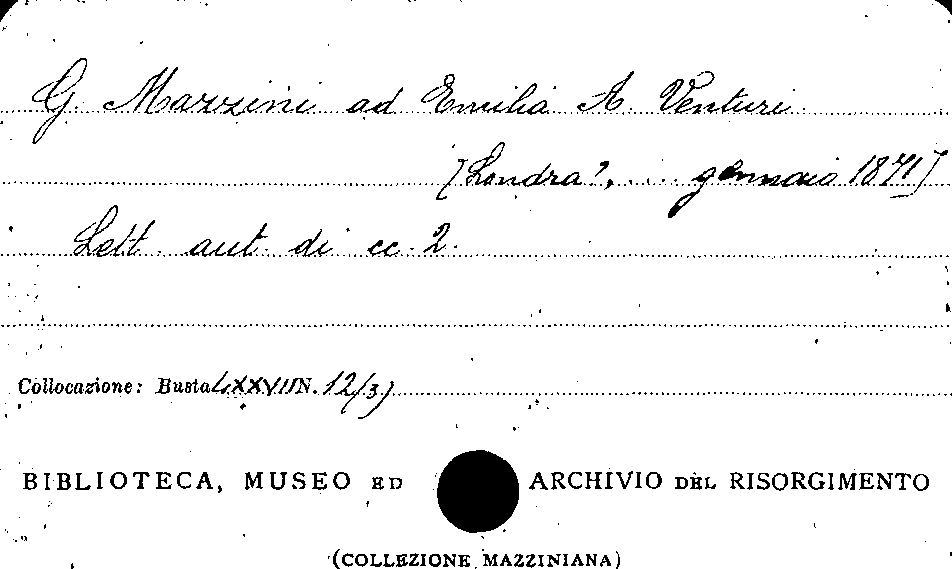 G. Mazzini ad Emilia A. Venturi
[Londra?, ... gennaio 1871]
Lett. aut. di cc. 2.
Collocazione: Busta LXXVII N. 12/3)
BIBLIOTECA, MUSEO ED ARCHIVIO DEL RISORGIMENTO
(COLLEZIONE MAZZINIANA)